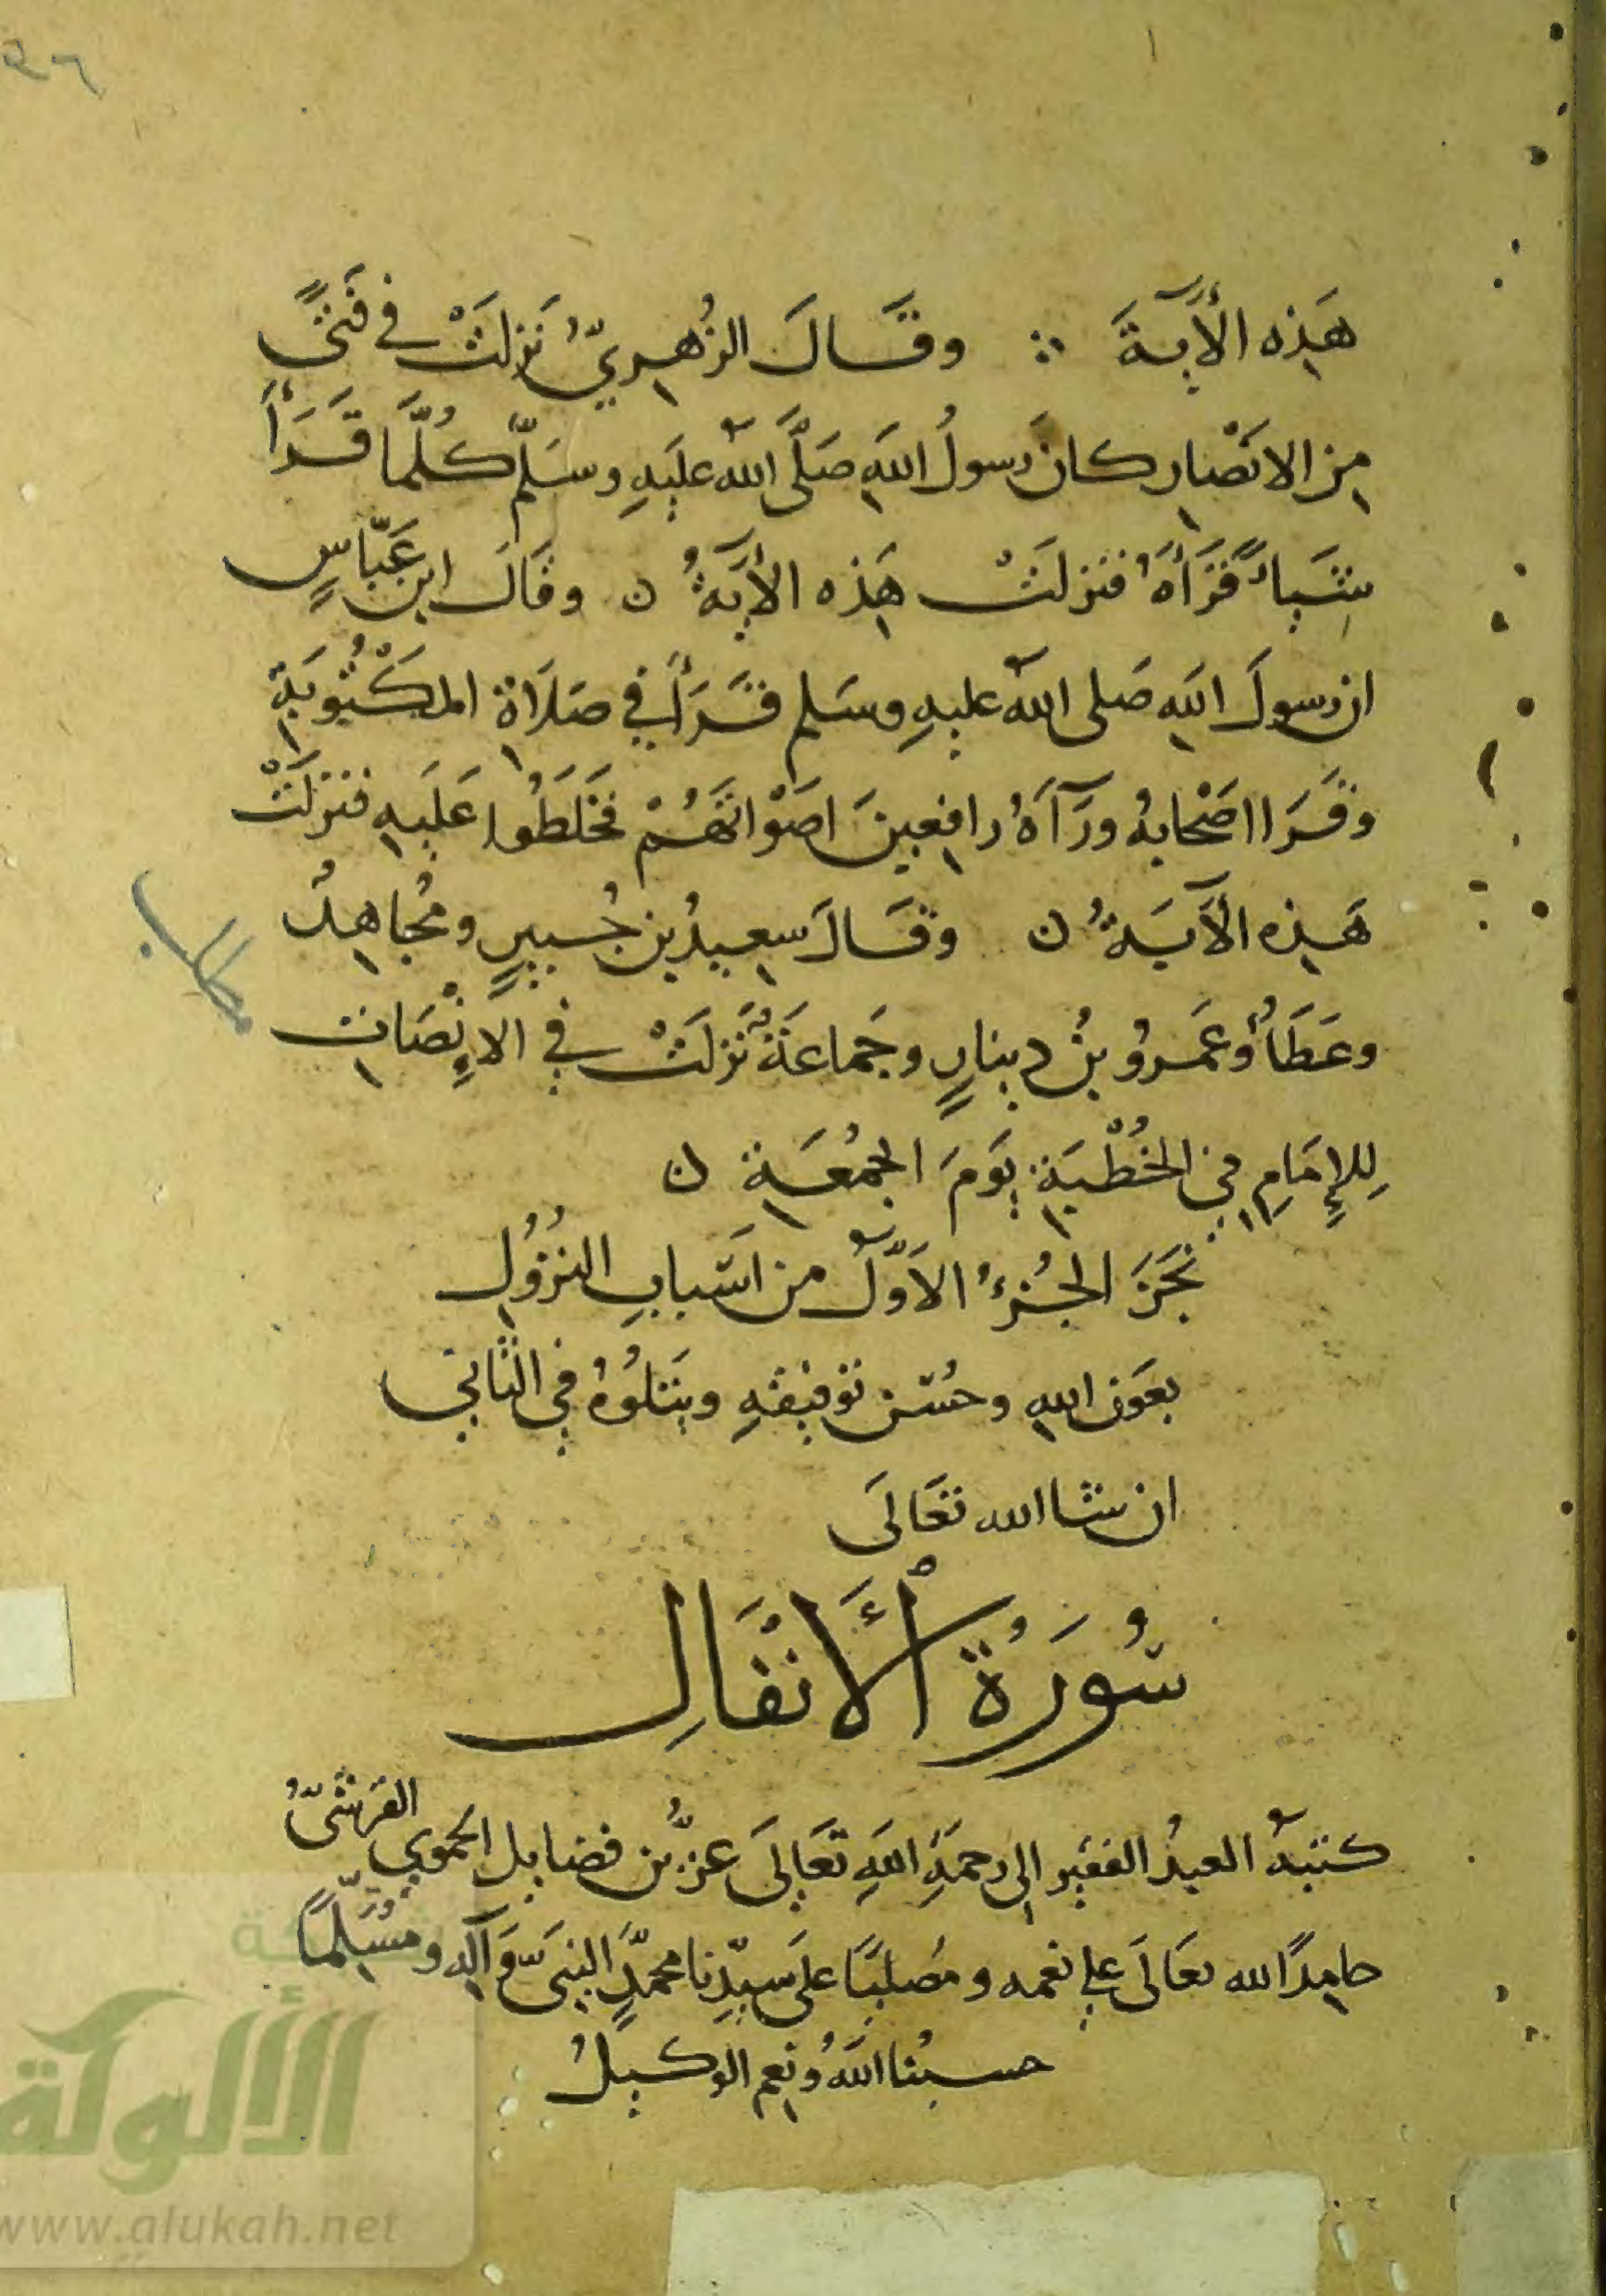 ٩٦
هَذِه الأَيَةَ ∴ وقَالَ الزُهريّ نَزلَتْ في فَتىً
مِن الانصَار كانَ رسولُ اللهِ صَلَّى اللهُ عليَهِ وسَلّم كُلَّمَا قَرَأَ
شَيأً قَرَأَهُ فنزلَتْ هَذِه الأَيَةُ ن وقَالَ ابن عَبّاسٍ
ان رسولَ اللهِ صَلى اللهُ عليهِ وسَلم قَرَأَ في صَلَاة المكْتُوبَةِ
وقَرَا اصْحابهُ ورَآهُ رافِعينَ اصَوْاتَهُمْ فخَلَطُوا عَلَيهِ فنزلَتْ
هَذِه الأَيَةُ ن وقَالَ سعِيدُ بن جُبيرٍ ومُجاهِدٌ
مطلب
وعَطَأٌ وعَمروُ بنُ دِينارٍ وجَماعَةٌ نَزلَتْ في الإنْصَات
لِلإِمَامِ فِي الخُطْبَةِ يَومَ الجمُعَةِ ن
نَجَزَ الجُزءُ الأَوّلُ من اسَبابِ النُزوُلِ
بعَون اللهِ وحُسْن توفيقهِ ويَتلوُهُ فِي الثانِي
ان شا الله تعَالَى
سُورَةُ ٱلأَنفَالِ
كتبهُ العبدُ الفقير الى رحمَةِ اللهِ تعَالَى عزّ بن فضايل الحموي القرشيّ
حامِدًا لله تعَالَى على نعمه ومُصليًا على سيّدِنا محمّدٍ النبيّ وَآلِهِ ومُسَلِّمًا
حسبُنا اللهُ ونعم الوكيلُ
الألوكة
www.alukah.net